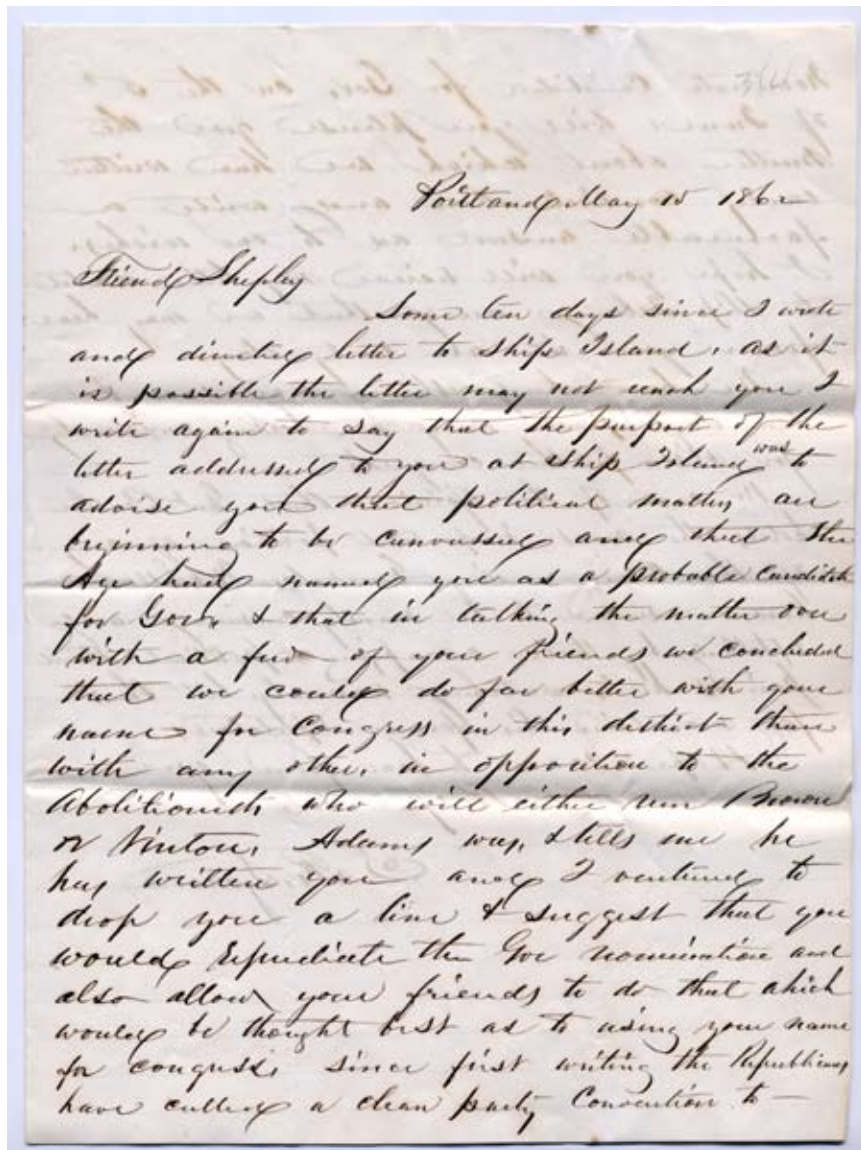 Portland May 15 1862
Friend Shepley
Some ten days since I wrote
and directed letter to Ship Island, as it
is possible the letter may not reach you I
write again to say that the purport of the
letter addressed to you at Ship Island was to
advise you that political matters are
beginning to be canvassed and that the
Age had named you as a probable candidate
for Gov. & that in talking the matter over
with a few of your friends we concluded
that we could do far better with your
name for Congress in this district than
with any other, in opposition to the
Abolitionists who will either run Brown
or Vinton, Adams says, & tells me he
has written you and I ventured to
drop you a line & suggest that you
would repudiate the Gov nomination and
also allow your friends to do that which
would be thought best as to using your name
for congress. since first writing the Republicans
have called a clean party Convention to